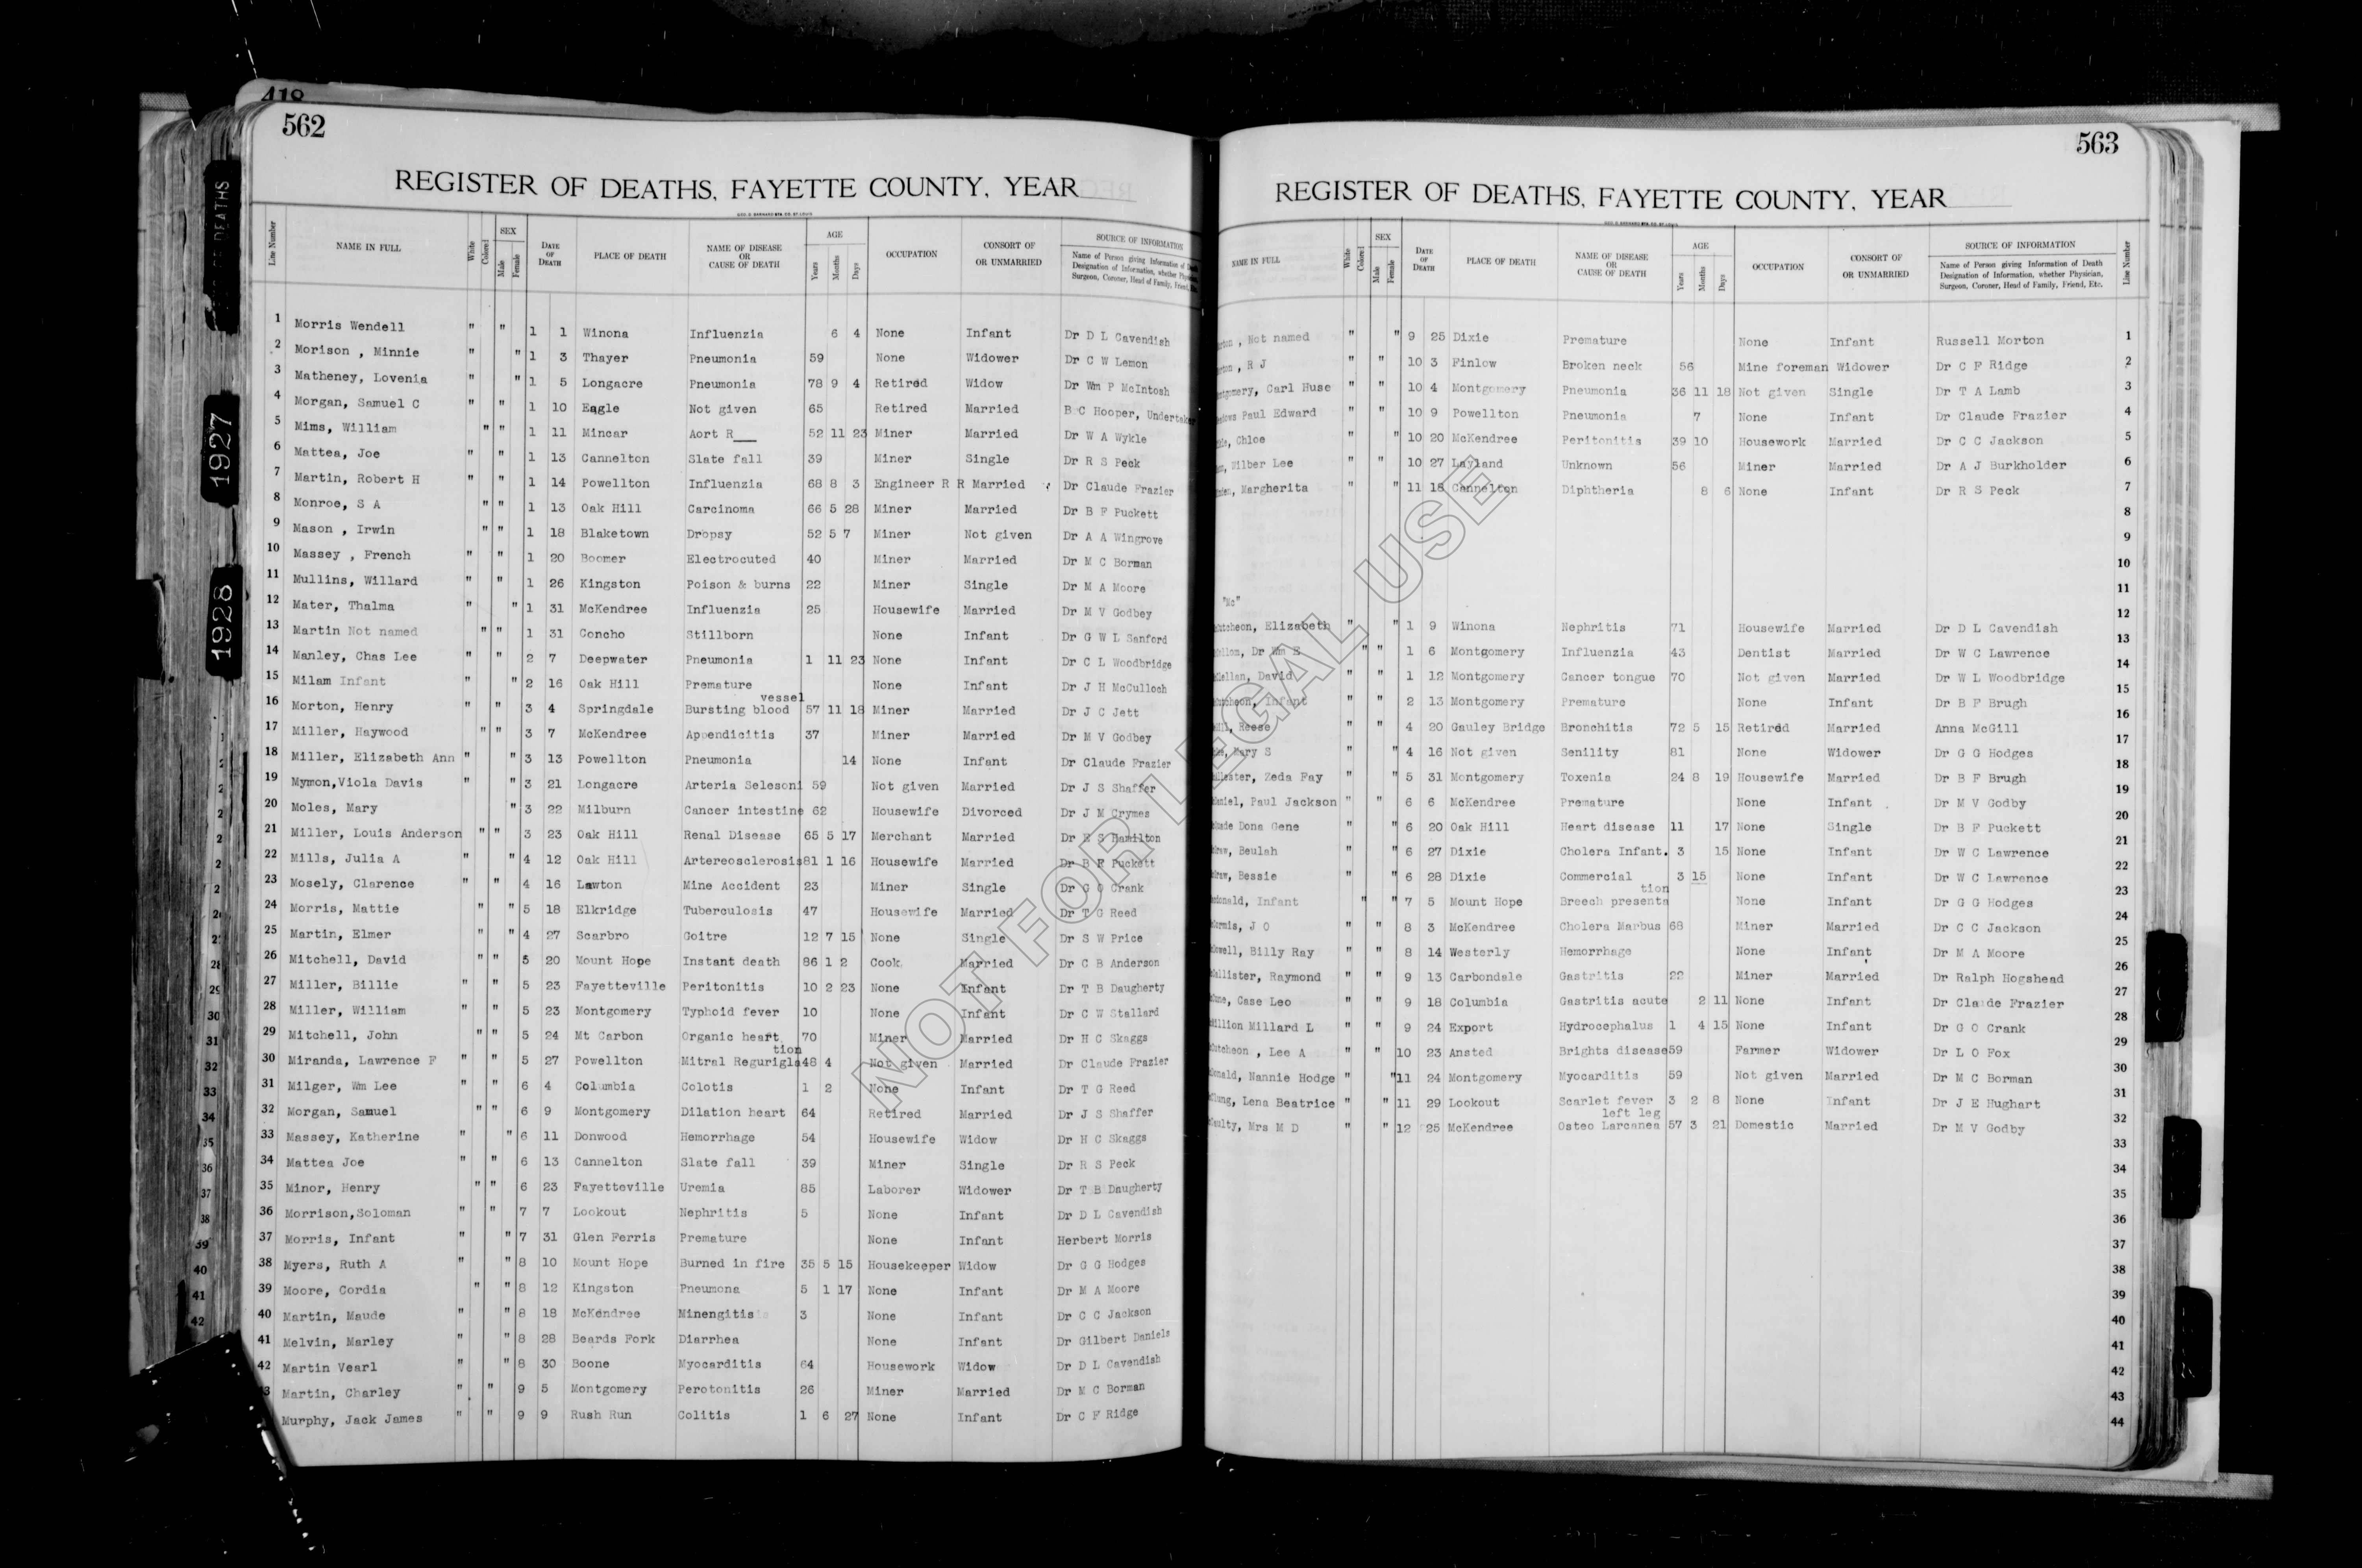 418
562
REGISTER OF DEATHS, FAYETTE COUNTY, YEAR
Line Number NAME IN FULL White Colored SEX Male Female DATE OF DEATH PLACE OF DEATH NAME OF DISEASE OR CAUSE OF DEATH AGE Years Months Days OCCUPATION CONSORT OF OR UNMARRIED SOURCE OF INFORMATION
Name of Person giving Information of Death
Designation of Information, whether Physician,
Surgeon, Coroner, Head of Family, Friend, Etc.
1 Morris Wendell " " 1 1 Winona Influenzia 6 4 None Infant Dr D L Cavendish
2 Morison , Minnie " " 1 3 Thayer Pneumonia 59 None Widower Dr C W Lemon
3 Matheney, Lovenia " " 1 5 Longacre Pneumonia 78 9 4 Retired Widow Dr Wm P McIntosh
4 Morgan, Samuel C " " 1 10 Eagle Not given 65 Retired Married B C Hooper, Undertaker
5 Mims, William " " 1 11 Mincar Aort R___ 52 11 23 Miner Married Dr W A Wykle
6 Mattea, Joe " " 1 13 Cannelton Slate fall 39 Miner Single Dr R S Peck
7 Martin, Robert H " " 1 14 Powellton Influenzia 68 8 3 Engineer R R Married Dr Claude Frazier
8 Monroe, S A " " 1 13 Oak Hill Carcinoma 66 5 28 Miner Married Dr B F Puckett
9 Mason , Irwin " " 1 18 Blaketown Dropsy 52 5 7 Miner Not given Dr A A Wingrove
10 Massey , French " " 1 20 Boomer Electrocuted 40 Miner Married Dr M C Borman
11 Mullins, Willard " " 1 26 Kingston Poison & burns 22 Miner Single Dr M A Moore
12 Mater, Thalma " " 1 31 McKendree Influenzia 25 Housewife Married Dr M V Godbey
13 Martin Not named " " 1 31 Concho Stillborn None Infant Dr G W L Sanford
14 Manley, Chas Lee " " 2 7 Deepwater Pneumonia 1 11 23 None Infant Dr C L Woodbridge
15 Milam Infant " " 2 16 Oak Hill Premature None Infant Dr J H McCulloch
16 Morton, Henry " " 3 4 Springdale Bursting blood vessel 57 11 18 Miner Married Dr J C Jett
17 Miller, Haywood " " 3 7 McKendree Appendicitis 37 Miner Married Dr M V Godbey
18 Miller, Elizabeth Ann " " 3 13 Powellton Pneumonia 14 None Infant Dr Claude Frazier
19 Mymon,Viola Davis " " 3 21 Longacre Arteria Selesoni 59 Not given Married Dr J S Shaffer
20 Moles, Mary " 3 22 Milburn Cancer intestine 62 Housewife Divorced Dr J M Crymes
21 Miller, Louis Anderson " " 3 23 Oak Hill Renal Disease 65 5 17 Merchant Married Dr E S Hamilton
22 Mills, Julia A " " 4 12 Oak Hill Artereosclerosis 81 1 16 Housewife Married Dr B F Puckett
23 Mosely, Clarence " " 4 16 Lawton Mine Accident 23 Miner Single Dr G O Crank
24 Morris, Mattie " " 5 18 Elkridge Tuberculosis 47 Housewife Married Dr T G Reed
25 Martin, Elmer " " 4 27 Scarbro Goitre 12 7 15 None Single Dr S W Price
26 Mitchell, David " " 5 20 Mount Hope Instant death 86 1 2 Cook Married Dr C B Anderson
27 Miller, Billie " " 5 23 Fayetteville Peritonitis 10 2 23 None Infant Dr T B Daugherty
28 Miller, William " " 5 23 Montgomery Typhoid fever 10 None Infant Dr C W Stallard
29 Mitchell, John " " 5 24 Mt Carbon Organic heart 70 Miner Married Dr H C Skaggs
30 Miranda, Lawrence F " " 5 27 Powellton Mitral Regurigla tion 48 4 Not given Married Dr Claude Frazier
31 Milger, Wm Lee " " 6 4 Columbia Colotis 1 2 None Infant Dr T G Reed
32 Morgan, Samuel " " 6 9 Montgomery Dilation heart 64 Retired Married Dr J S Shaffer
33 Massey, Katherine " " 6 11 Donwood Hemorrhage 54 Housewife Widow Dr H C Skaggs
34 Mattea Joe " " 6 13 Cannelton Slate fall 39 Miner Single Dr R S Peck
35 Minor, Henry " " 6 23 Fayetteville Uremia 85 Laborer Widower Dr T B Daugherty
36 Morrison,Soloman " " 7 7 Lookout Nephritis 5 None Infant Dr D L Cavendish
37 Morris, Infant " " 7 31 Glen Ferris Premature None Infant Herbert Morris
38 Myers, Ruth A " " 8 10 Mount Hope Burned in fire 35 5 15 Housekeeper Widow Dr G G Hodges
39 Moore, Cordia " " 8 12 Kingston Pneumona 5 1 17 None Infant Dr M A Moore
40 Martin, Maude " " 8 18 McKendree Minengitis 3 None Infant Dr C C Jackson
41 Melvin, Marley " " 8 28 Beards Fork Diarrhea None Infant Dr Gilbert Daniels
42 Martin Vearl " " 8 30 Boone Myocarditis 64 Housework Widow Dr D L Cavendish
3 Martin, Charley " " 9 5 Montgomery Perotonitis 26 Miner Married Dr M C Borman
Murphy, Jack James " " 9 9 Rush Run Colitis 1 6 27 None Infant Dr C F Ridge
563
REGISTER OF DEATHS, FAYETTE COUNTY, YEAR
NAME IN FULL White Colored SEX Male Female DATE OF DEATH PLACE OF DEATH NAME OF DISEASE OR CAUSE OF DEATH AGE Years Months Days OCCUPATION CONSORT OF OR UNMARRIED SOURCE OF INFORMATION Line Number
Name of Person giving Information of Death
Designation of Information, whether Physician,
Surgeon, Coroner, Head of Family, Friend, Etc.
, Not named " " 9 25 Dixie Premature None Infant Russell Morton 1
, R J " " 10 3 Finlow Broken neck 56 Mine foreman Widower Dr C F Ridge 2
Carl Huse " " 10 4 Montgomery Pneumonia 36 11 18 Not given Single Dr T A Lamb 3
Paul Edward " " 10 9 Powellton Pneumonia 7 None Infant Dr Claude Frazier 4
Chloe " " 10 20 McKendree Peritonitis 39 10 Housework Married Dr C C Jackson 5
Wilber Lee " " 10 27 Layland Unknown 56 Miner Married Dr A J Burkholder 6
Margherita " " 11 18 Cannelton Diphtheria 8 6 None Infant Dr R S Peck 7
8
9
10
11
"Mc"
12
Elizabeth " " 1 9 Winona Nephritis 71 Housewife Married Dr D L Cavendish 13
Dr Wm E " " 1 6 Montgomery Influenzia 43 Dentist Married Dr W C Lawrence 14
David " " 1 12 Montgomery Cancer tongue 70 Not given Married Dr W L Woodbridge 15
Infant " " 2 13 Montgomery Premature None Infant Dr B F Brugh 16
Reese " " 4 20 Gauley Bridge Bronchitis 72 5 15 Retired Married Anna McGill 17
Mary S " " 4 16 Not given Senility 81 None Widower Dr G G Hodges 18
Zeda Fay " " 5 31 Montgomery Toxenia 24 8 19 Housewife Married Dr B F Brugh 19
Paul Jackson " " 6 6 McKendree Premature None Infant Dr M V Godby 20
Dona Gene " " 6 20 Oak Hill Heart disease 11 17 None Single Dr B F Puckett 21
Beulah " " 6 27 Dixie Cholera Infant. 3 15 None Infant Dr W C Lawrence 22
Bessie " " 6 28 Dixie Commercial 3 15 None Infant Dr W C Lawrence 23
Infant " " 7 5 Mount Hope Breech presenta tion None Infant Dr G G Hodges 24
J O " " 8 3 McKendree Cholera Marbus 68 Miner Married Dr C C Jackson 25
Billy Ray " " 8 14 Westerly Hemorrhage None Infant Dr M A Moore 26
Raymond " " 9 13 Carbondale Gastritis 22 Miner Married Dr Ralph Hogshead 27
Case Leo " " 9 18 Columbia Gastritis acute 2 11 None Infant Dr Claude Frazier 28
Millard L " " 9 24 Export Hydrocephalus 1 4 15 None Infant Dr G O Crank 29
, Lee A " " 10 23 Ansted Brights disease 59 Farmer Widower Dr L O Fox 30
Nannie Hodge " " 11 24 Montgomery Myocarditis 59 Not given Married Dr M C Borman 31
Lena Beatrice " " 11 29 Lookout Scarlet fever 3 2 8 None Infant Dr J E Hughart 32
Mrs M D " " 12 25 McKendree Osteo Larcanea left leg 57 3 21 Domestic Married Dr M V Godby 33
34
35
36
37
38
39
40
41
42
43
44
1927
1928
NOT FOR LEGAL USE